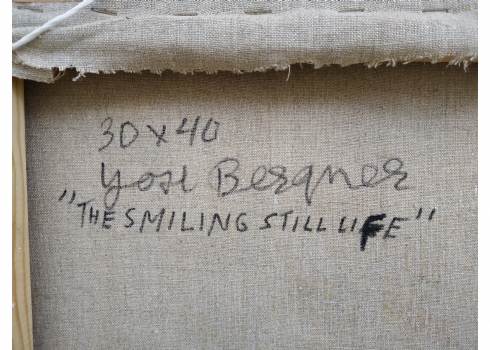 30x40
Yosl Bergner
"THE SMILING STILL LIFE"